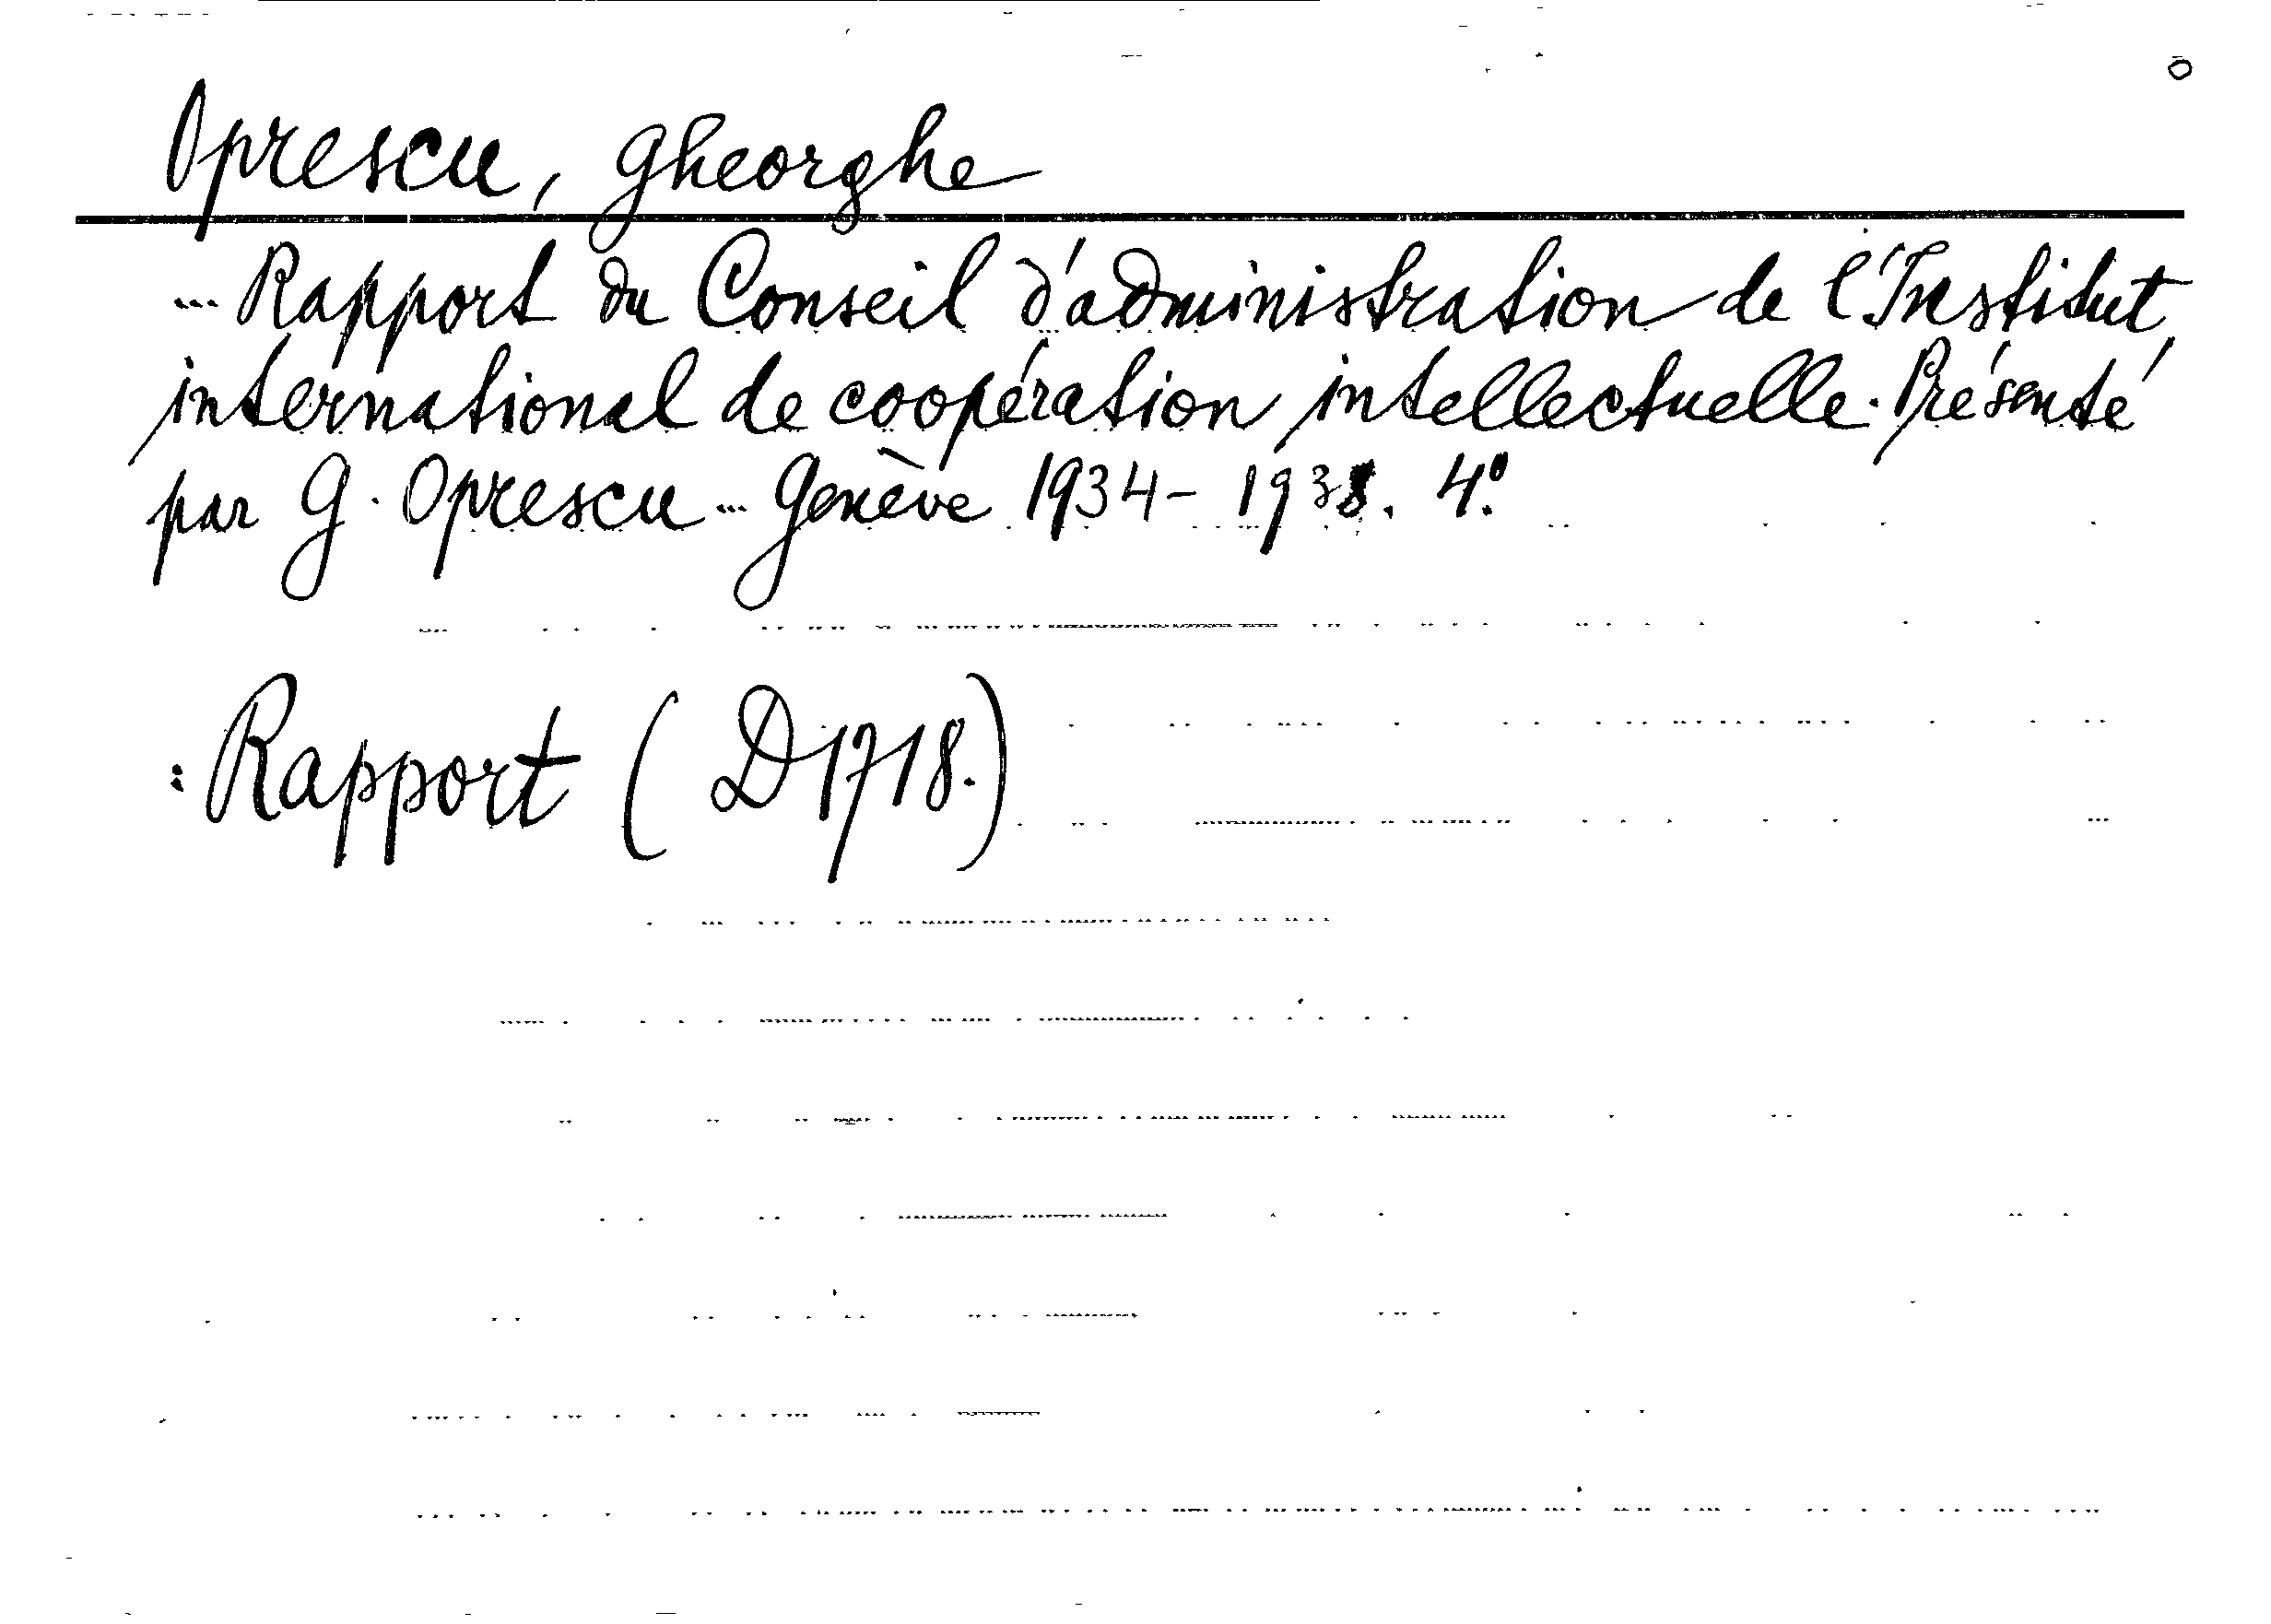 Oprescu, Gheorghe
... Rapport du Conseil d'administration de l'Institut
international de coopération intellectuelle. Présenté
par G. Oprescu ... Genève 1934- 1938. 4º.
: Rapport ( D1718.)